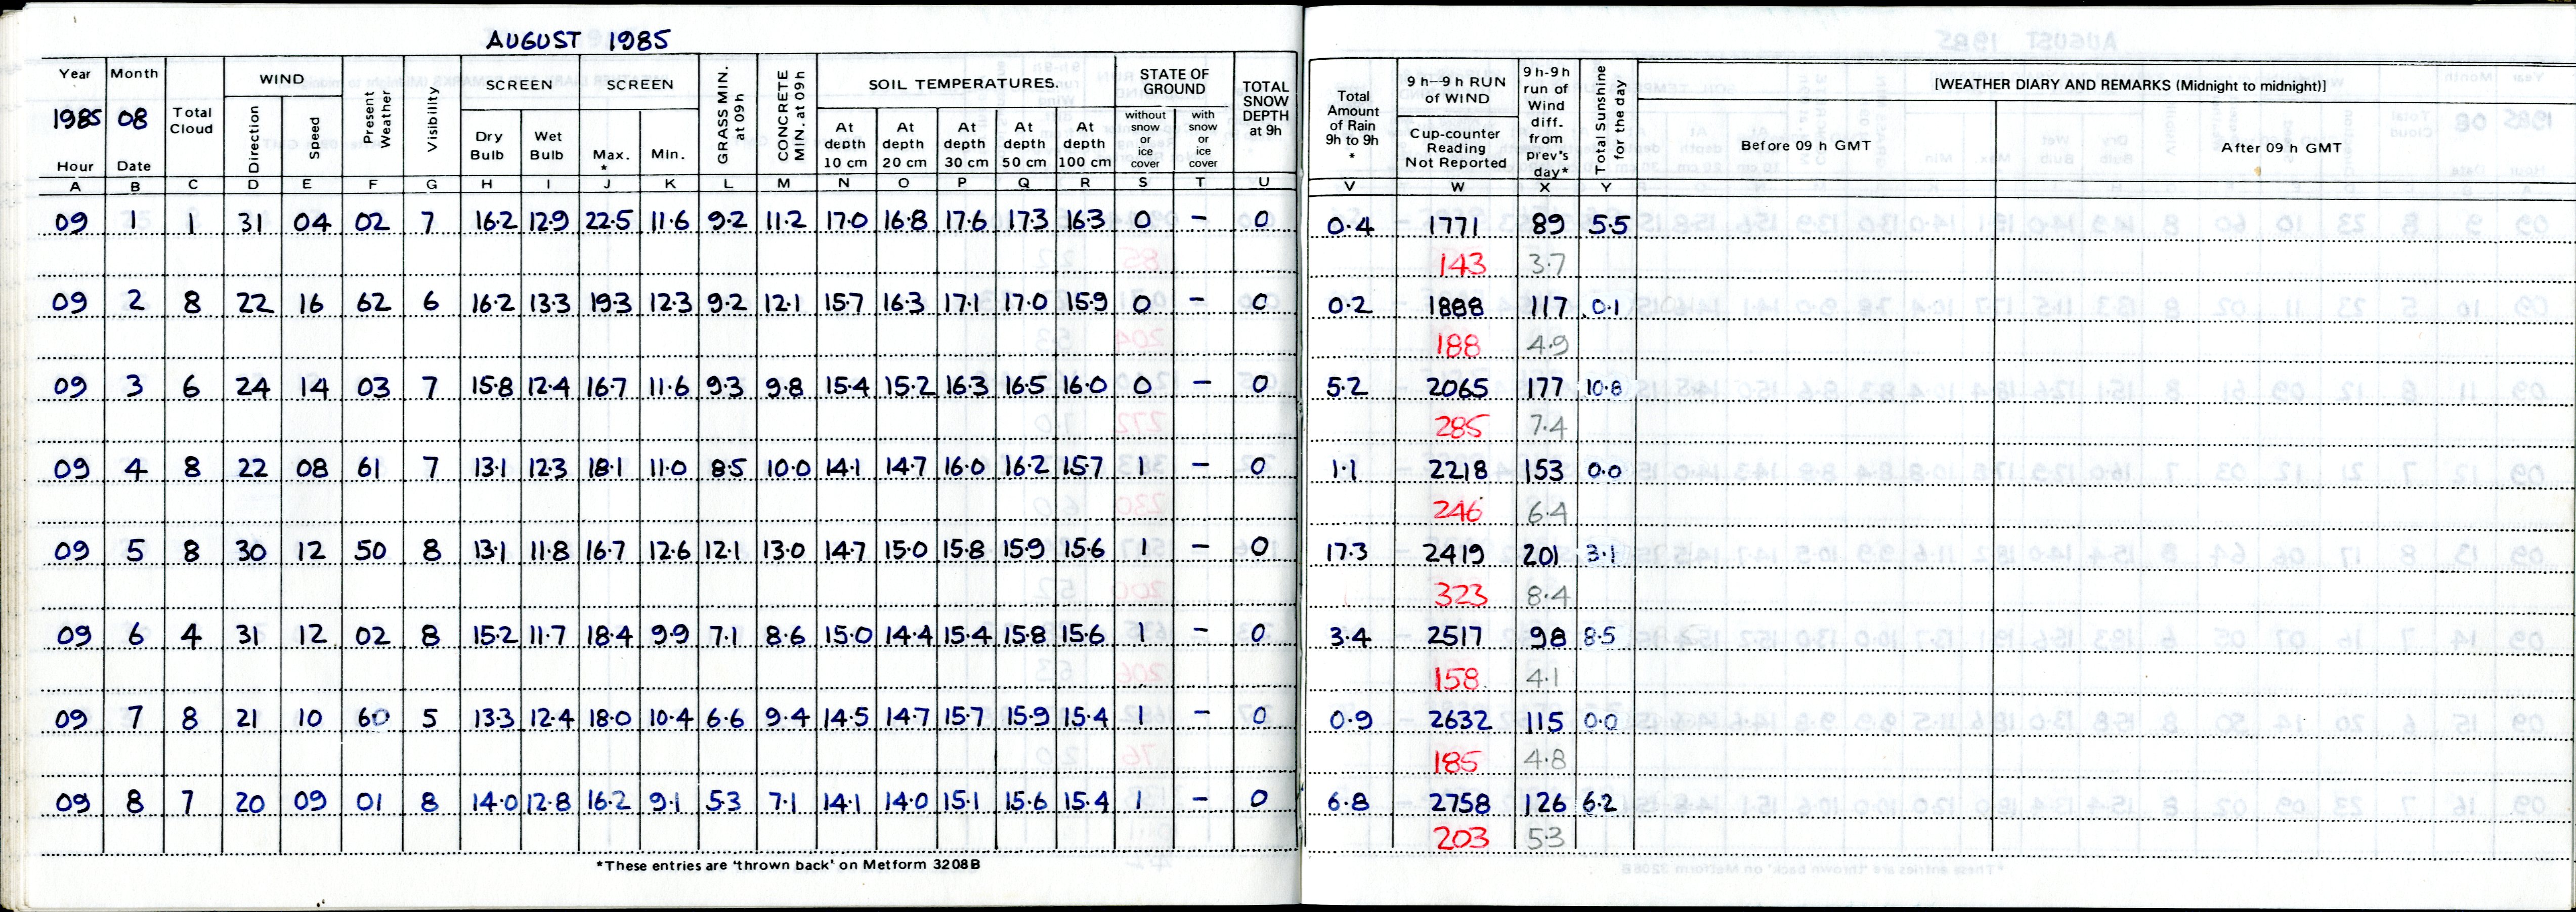 AUGUST 1985
Year Month Total Cloud WIND Present Weather Visibility SCREEN SCREEN GRASS MIN. at 09h CONCRETE MIN. at 09h SOIL TEMPERATURES. STATE OF GROUND TOTAL SNOW DEPTH at 9h
1985 08 Direction Speed Dry Bulb Wet Bulb Max. * Min. At depth 10 cm At depth 20 cm At depth 30 cm At depth 50 cm At depth 100 cm without snow or ice cover with snow or ice cover
Hour Date
Total Amount of Rain 9h to 9h * 9h–9h RUN of WIND Cup-counter Reading Not Reported 9h-9h run of Wind diff. from prev's day* Total Sunshine for the day [WEATHER DIARY AND REMARKS (Midnight to midnight)]
Before 09 h GMT After 09 h GMT
A B C D E F G H I J K L M N O P Q R S T U V W X Y
09 1 1 31 04 02 7 16.2 12.9 22.5 11.6 9.2 11.2 17.0 16.8 17.6 17.3 16.3 0 – 0 0.4 1771 89 5.5
143 3.7
09 2 8 22 16 62 6 16.2 13.3 19.3 12.3 9.2 12.1 15.7 16.3 17.1 17.0 15.9 0 – 0 0.2 1888 117 0.1
188 4.9
09 3 6 24 14 03 7 15.8 12.4 16.7 11.6 9.3 9.8 15.4 15.2 16.3 16.5 16.0 0 – 0 5.2 2065 177 10.8
285 7.4
09 4 8 22 08 61 7 13.1 12.3 18.1 11.0 8.5 10.0 14.1 14.7 16.0 16.2 15.7 1 – 0 1.1 2218 153 0.0
246 6.4
09 5 8 30 12 50 8 13.1 11.8 16.7 12.6 12.1 13.0 14.7 15.0 15.8 15.9 15.6 1 – 0 17.3 2419 201 3.1
323 8.4
09 6 4 31 12 02 8 15.2 11.7 18.4 9.9 7.1 8.6 15.0 14.4 15.4 15.8 15.6 1 – 0 3.4 2517 98 8.5
158 4.1
09 7 8 21 10 60 5 13.3 12.4 18.0 10.4 6.6 9.4 14.5 14.7 15.7 15.9 15.4 1 – 0 0.9 2632 115 0.0
185 4.8
09 8 7 20 09 01 8 14.0 12.8 16.2 9.1 5.3 7.1 14.1 14.0 15.1 15.6 15.4 1 – 0 6.8 2758 126 6.2
203 5.3
*These entries are 'thrown back' on Metform 3208B